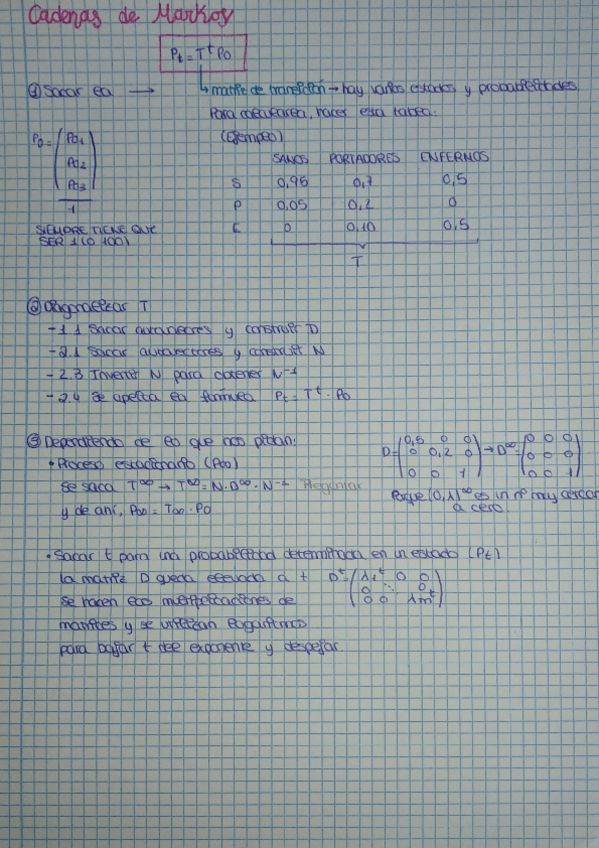 Cadenas de Markov
Pt = T^t P0
① Sacar la → matriz de transición → hay varios estados y probabilidades
Para calcularla, hacer esta tabla:
(Ejemplo)
P0 = (P01
P02
P03)
1
SIEMPRE TIENE QUE
SER 1 (O 100)
SANOS PORTADORES ENFERMOS
S 0,95 0,7 0,5
P 0,05 0,2 0
E 0 0,10 0,5
T
② Diagonalizar T
- 1.1 Sacar autovalores y construir D
- 2.1 Sacar autovectores y construir N
- 2.3 Invertir N para obtener N^-1
- 2.4 Se aplica la fórmula Pt = T^t · P0
③ Dependiendo de lo que nos pidan:
• Proceso estacionario (P∞)
Se saca T^∞ → T^∞ = N · D^∞ · N^-1 Preguntar
y de ahí, P∞ = T∞ · P0
D = (0,5 0 0
0 0,2 0
0 0 1) → D^∞ = (0 0 0
0 0 0
0 0 1)
Porque (0,λ)^∞ es un nº muy cercano
a cero.
• Sacar t para una probabilidad determinada en un estado (Pt)
La matriz D queda elevada a t D^t = (λ1^t 0 0
0 ⋱ 0
0 0 λm^t)
se hacen las multiplicaciones de
matrices y se utilizan logaritmos
para bajar t del exponente y despejar.